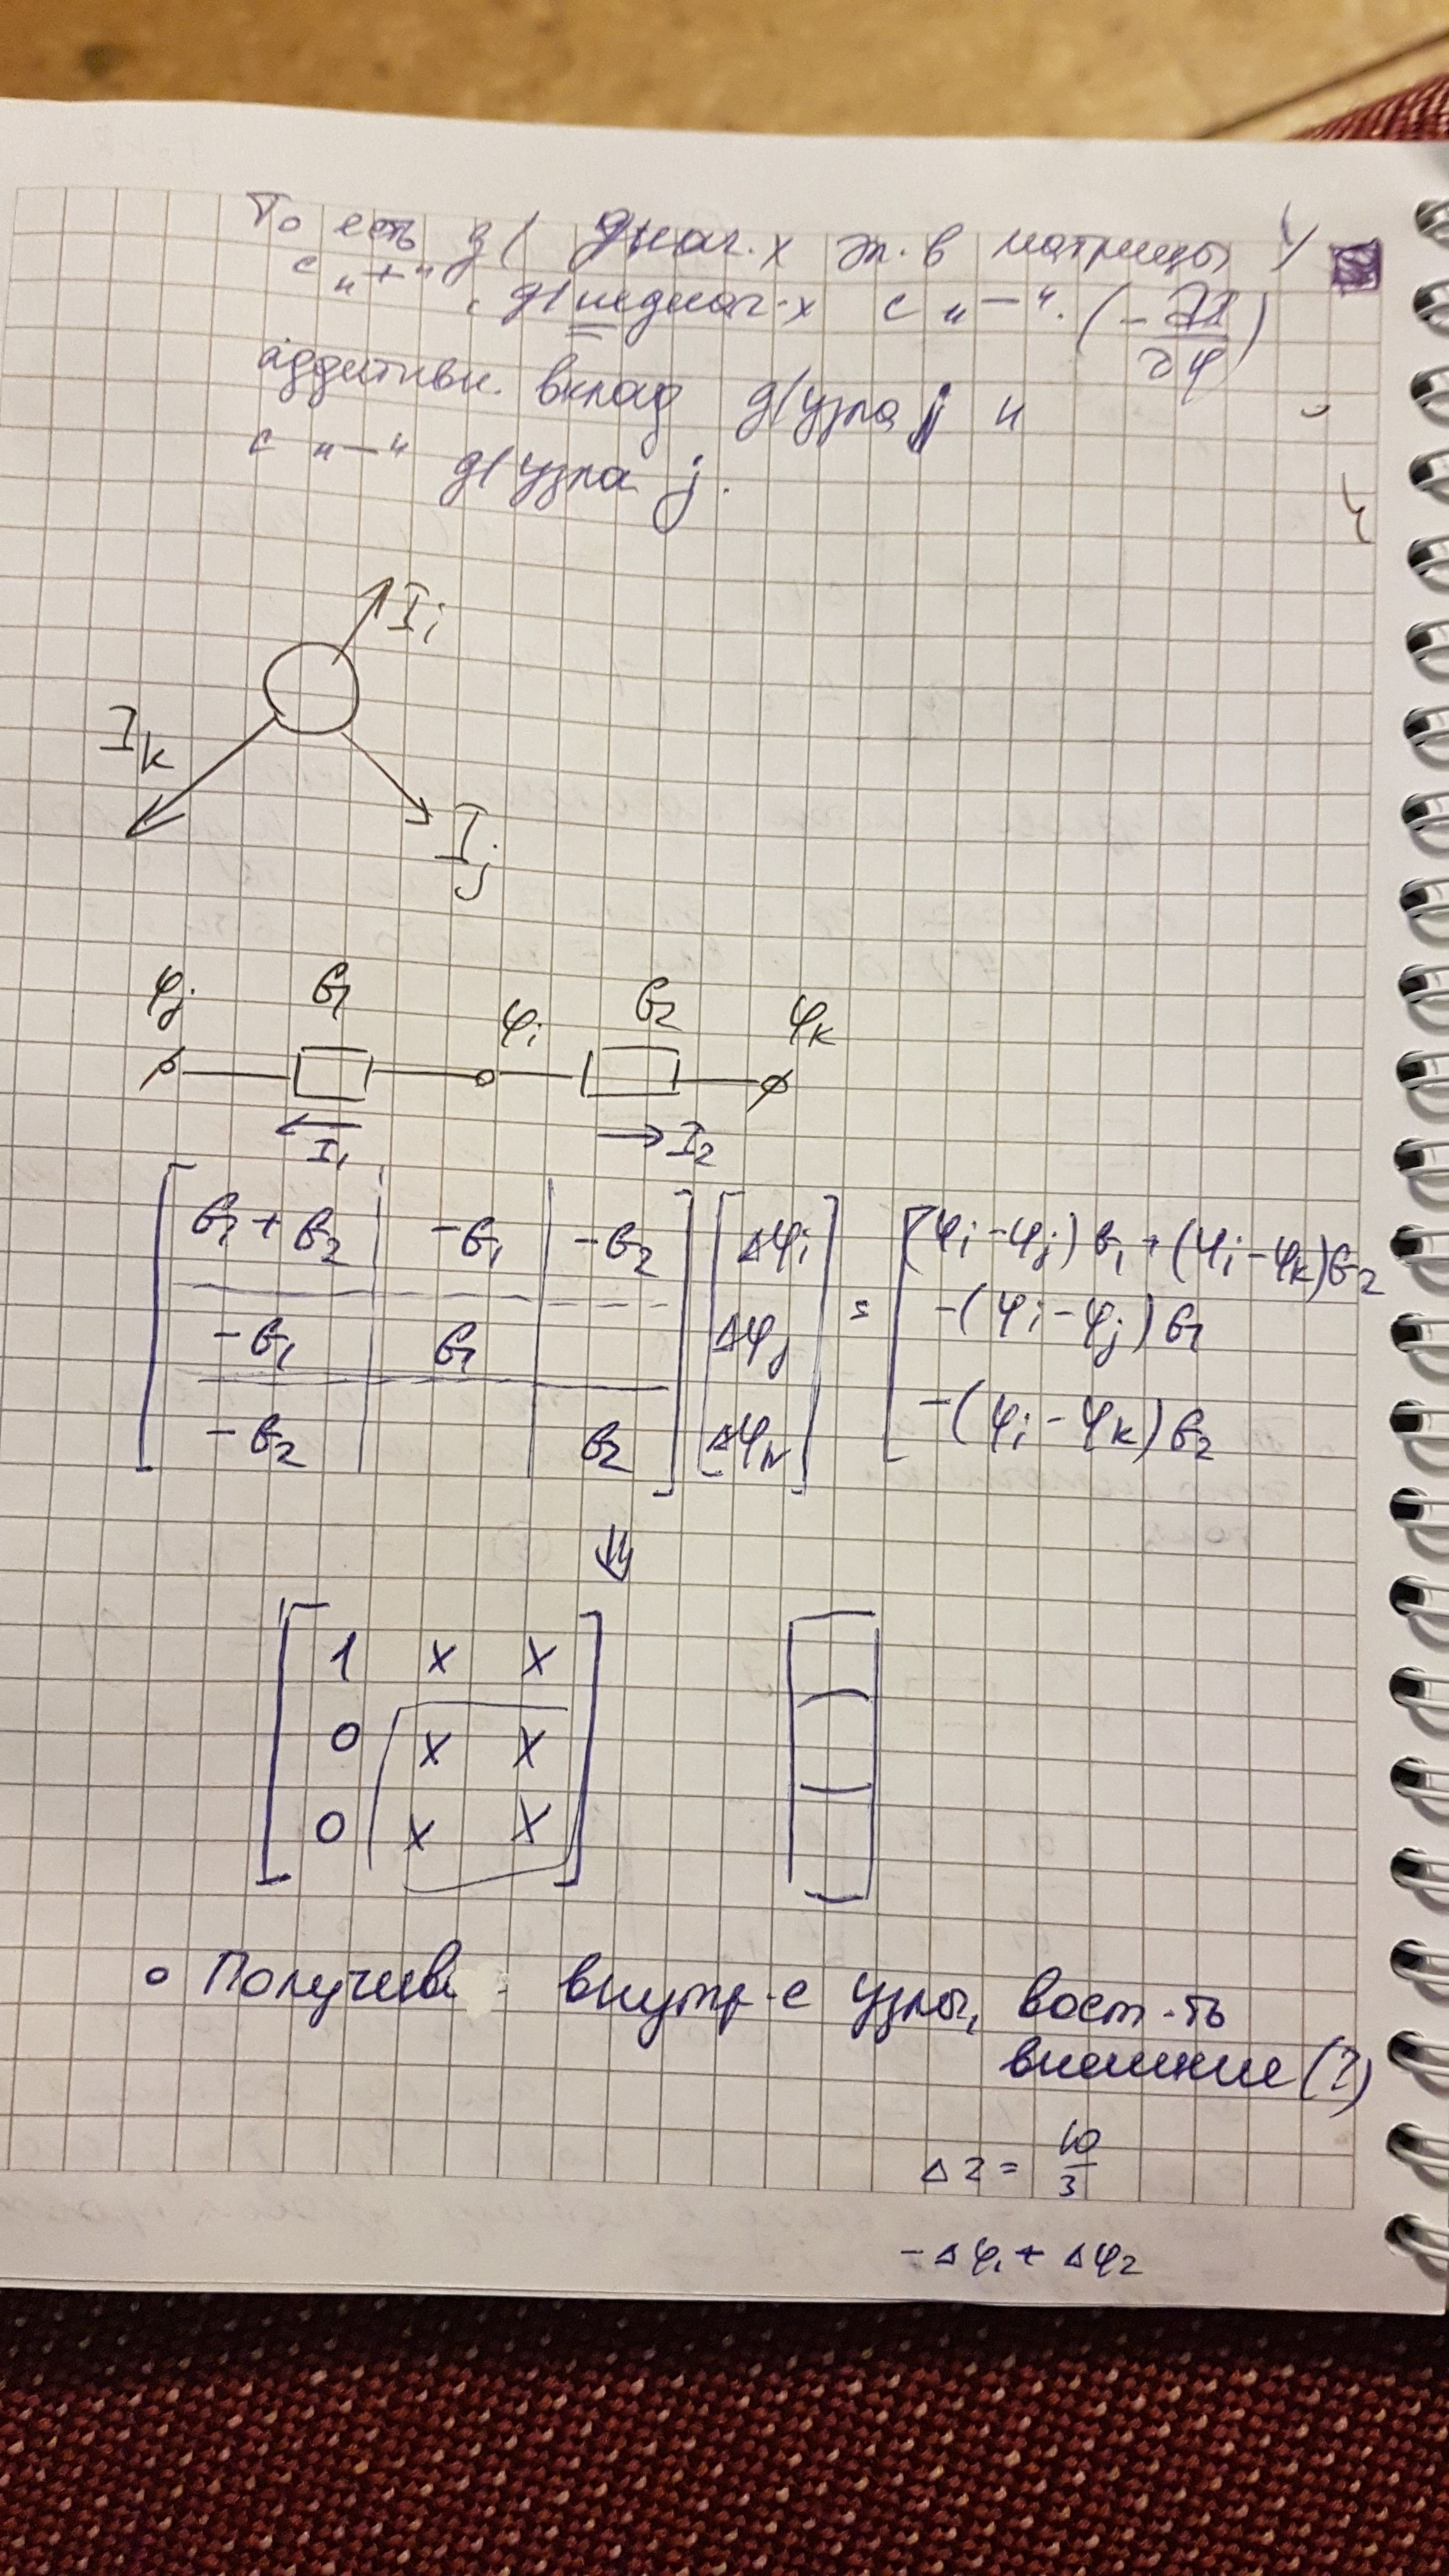 То есть д/ диаг.х эл. в матрицы Y
с "+", д/ недиаг-х с "—". (-∂I/∂φ)
аддитивн. вклад д/ узла j и
с "—" д/ узла j.
I_i
I_k
I_j
φ_j G_1 φ_i G_2 φ_k
I_1 I_2
[G_1 + G_2 | -G_1 | -G_2] [Δφ_i] = [(φ_i - φ_j) G_1 + (φ_i - φ_k) G_2
[-G_1 | G_1 | ] [Δφ_j] -(φ_i - φ_j) G_1
[-G_2 | | G_2] [Δφ_k] -(φ_i - φ_k) G_2
⇓
1 x x
0 x x
0 x x
o Получив внутр-е узлы, вост-ть
внешние (?)
Δ2 = 10/3
-Δφ_1 + Δφ_2